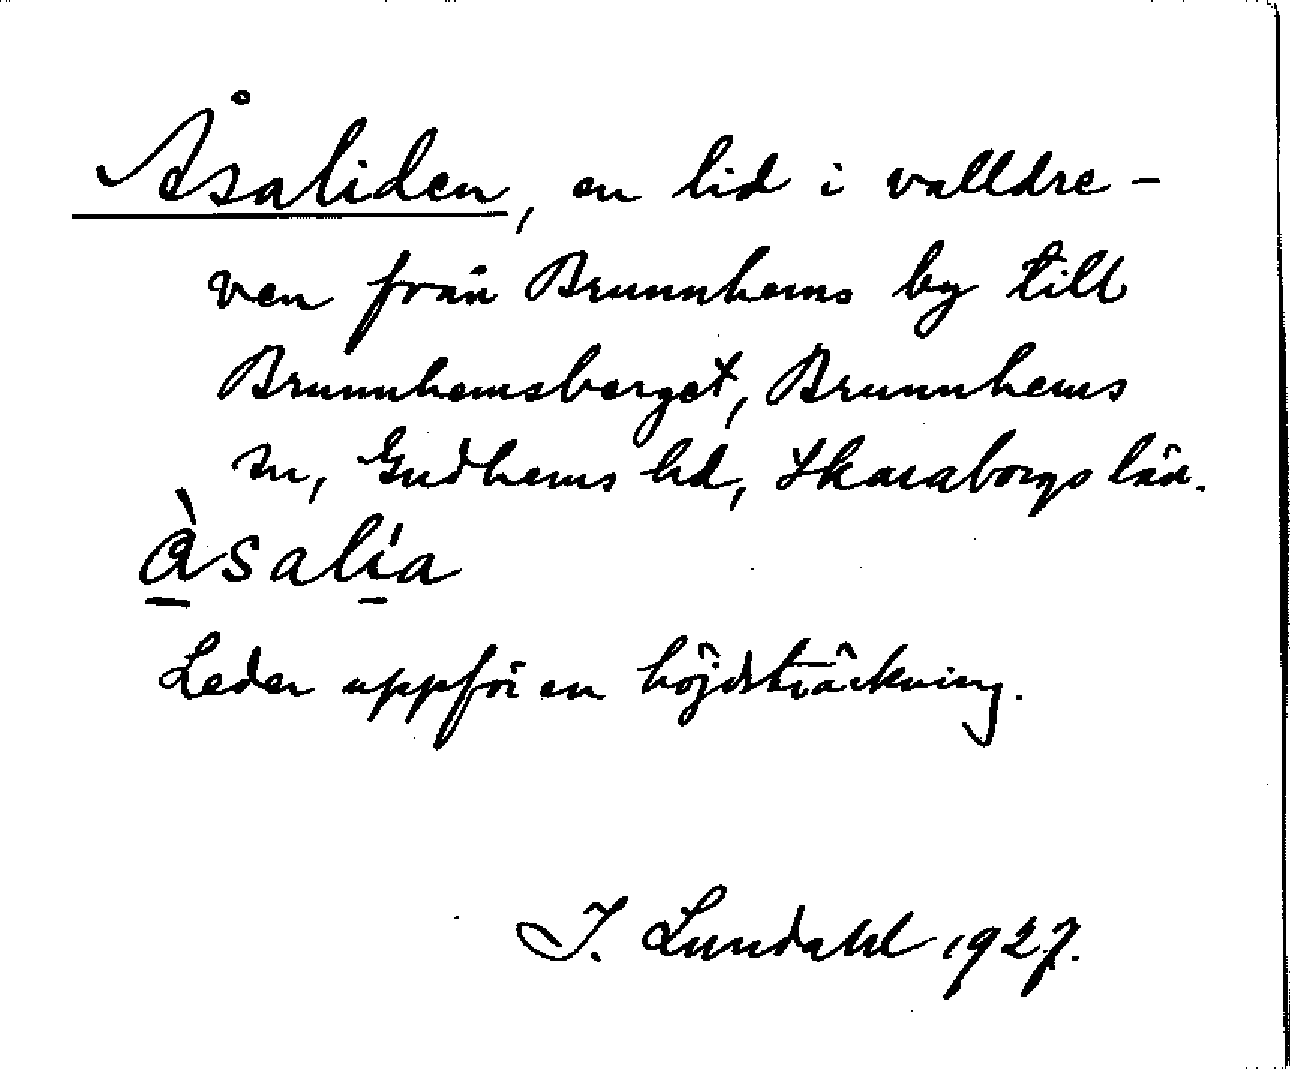 Åsaliden, en lid i valldre-
ven från Brunnhems by till
Brunnhemsberget, Brunnhems
sn, Gudhems hd, Skaraborgs län.
à̱salí̱a
Leder uppför en höjdsträckning.
I. Lundahl 1927.